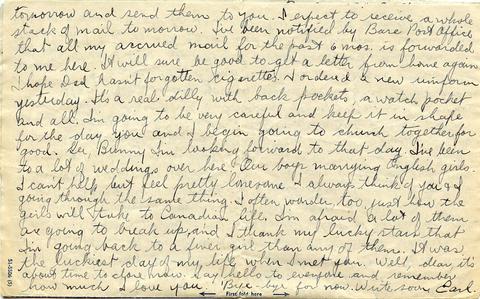 tomorrow and send them to you. I expect to receive a whole
stack of mail tomorrow. I've been notified by Base Post Office
that all my accrued mail for the past 6 mos. is forwarded
to me here. It will sure be good to get a letter from home again
I hope Dad hasn't forgotten cigarettes. I ordered a new uniform
yesterday. It's a real dilly with back pockets, a watch pocket
and all. I'm going to be very careful and keep it in shape
for the day you and I begin going to church together for
good. Gee, Bunny I'm looking forward to that day. I've been
to a lot of weddings over here. Our boys marrying English girls.
I can't help but feel pretty lonesome. I always think of you & I
going through the same thing. I often wonder, too, just how the
girls will take to Canadian life. I'm afraid a lot of them
are going to break up, and I thank my lucky stars that
I'm going back to a finer girl than any of them. It was
the luckiest day of my life when I met you. Well, dear it's
about time to close now. Say hello to everyone and remember
how much I love you. 'Bye-bye for now. Write soon, Earl.
First fold here